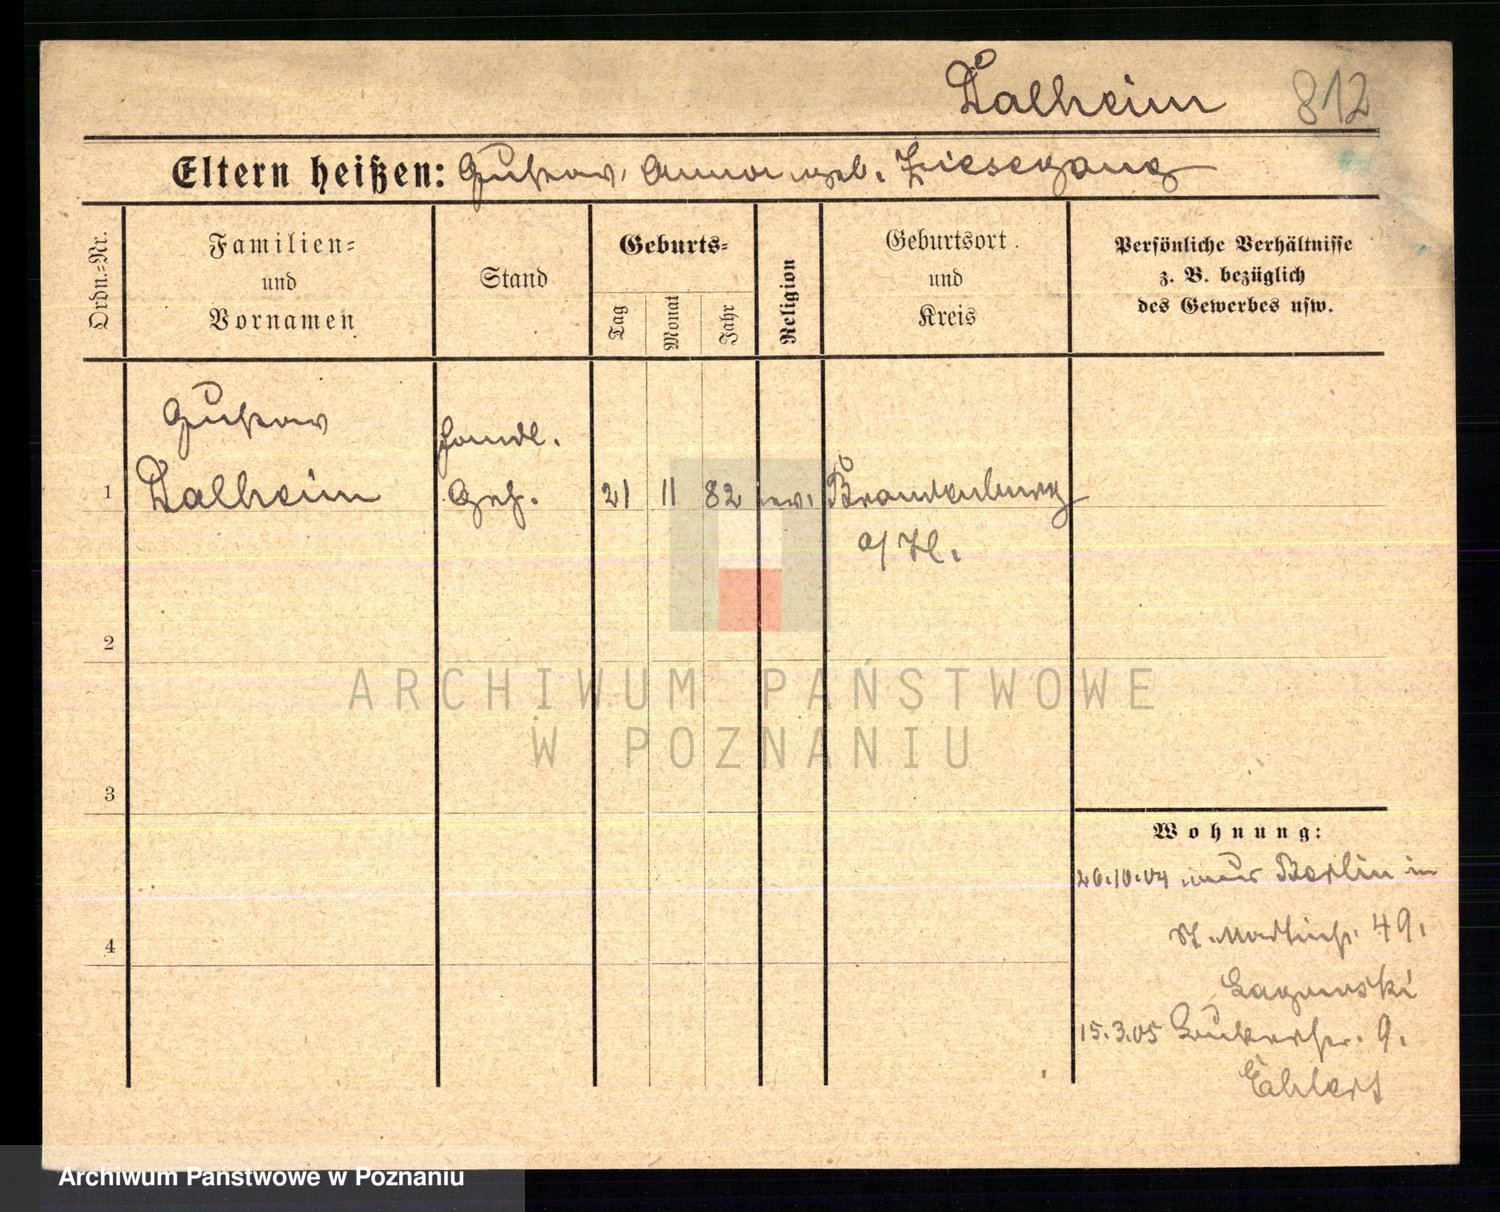 Dalheim 812
Eltern heißen: Gustav, Anna geb. Ziesegang
Ordn.=Nr.
Familien=
und
Vornamen
Stand
Geburts=
Tag
Monat
Jahr
Religion
Geburtsort
und
Kreis
Persönliche Verhältnisse
z. B. bezüglich
des Gewerbes usw.
Gustav
1 Dalheim
Handl.
Geh.
21 11 82 ev. Brandenburg
a/H.
2
3
4
Wohnung:
20.10.04 aus Berlin in
St. Martinstr. 49.
Lagowski
15.3.05 9.
Ehlert
ARCHIWUM PAŃSTWOWE
W POZNANIU
Archiwum Państwowe w Poznaniu